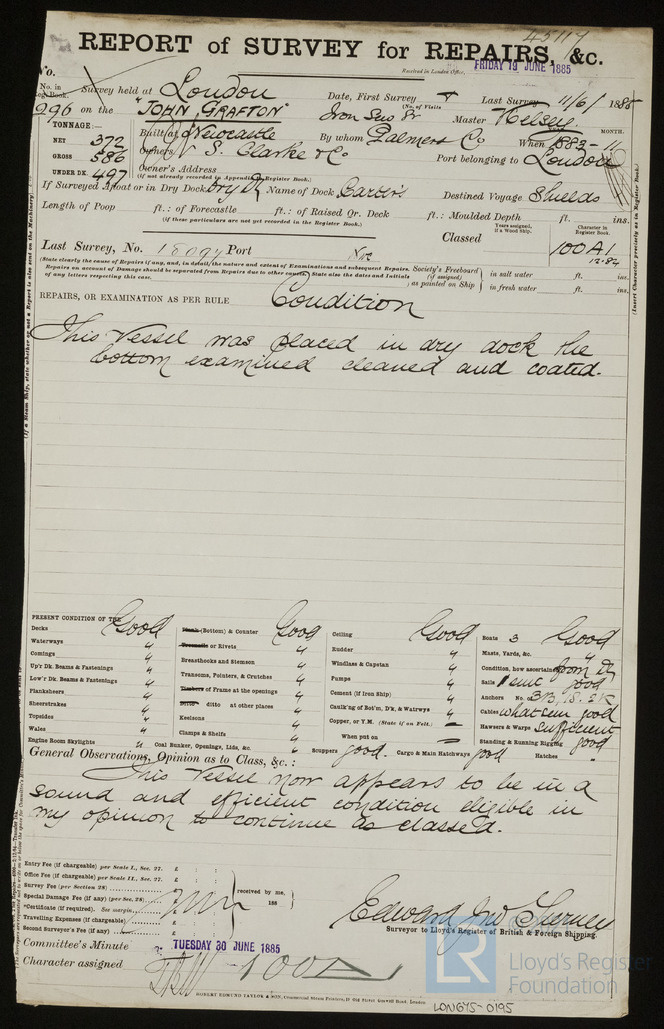 45117
REPORT of SURVEY for REPAIRS, &c.
No.
Received in London Office,
FRIDAY 19 JUNE 1885
No. in Log Book.
Survey held at London
Date, First Survey
(No. of Visits
Last Survey 11/6/ 1885
296 on the "JOHN GRAFTON"
Iron Scw Sr
Master Kelsey
TONNAGE:—
NET 372
GROSS 586
UNDER DK. 497
Built at Newcastle
By whom Palmers Co
When 1883 - 11
MONTH.
Owners S. Clarke & Co
Port belonging to London
Owner's Address
(if not already recorded in Appendix Register Book.)
If Surveyed Afloat or in Dry Dock Dry D
Name of Dock Barber's
Destined Voyage Shields
Length of Poop ft.: of Forecastle ft.: of Raised Qr. Deck ft.: Moulded Depth ft. ins.
(if these particulars are not yet recorded in the Register Book.)
Years assigned, if a Wood Ship.
Character in Register Book.
Last Survey, No. Port
Classed 100 A1
12.84
(State clearly the cause of Repairs if any, and, in detail, the nature and extent of Examinations and subsequent Repairs.
Repairs on account of Damage should be separated from Repairs due to other causes. State also the dates and Initials
of any letters respecting this case.
Society's Freeboard (if assigned) as painted on Ship
in salt water ft. ins.
in fresh water ft. ins.
REPAIRS, OR EXAMINATION AS PER RULE Condition
This Vessel was placed in dry dock the
bottom examined cleaned and coated.
PRESENT CONDITION OF THE
Decks Good
Waterways "
Comings "
Up'r Dk. Beams & Fastenings "
Low'r Dk. Beams & Fastenings "
Planksheers "
Sheerstrakes "
Topsides "
Wales "
Engine Room Skylights "
Plank (Bottom) & Counter Good
Treenails or Rivets "
Breasthooks and Stemson "
Transoms, Pointers, & Crutches "
Timbers of Frame at the openings "
Ditto ditto at other places "
Keelsons "
Clamps & Shelfs "
Coal Bunker, Openings, Lids, &c. "
Ceiling Good
Rudder "
Windlass & Capstan "
Pumps "
Cement (if Iron Ship) "
Caulk'ng of Bot'm, D'k, & Watrwys "
Copper, or Y.M. (State if on Felt.) —
When put on —
Scuppers good. Cargo & Main Hatchways good
Boats 3 Good
Masts, Yards, &c. "
Condition, how ascertained from Dk
Sails good
Anchors No. of 3B, 1S. 2K
Cables what seen good
Hawsers & Warps sufficient
Standing & Running Rigging good
Hatches "
General Observations, Opinion as to Class, &c. :
This Vessel now appears to be in a
sound and efficient condition eligible in
my opinion to continue as classed.
Entry Fee (if chargeable) per Scale I., Sec. 27. £
Office Fee (if chargeable) per Scale II., Sec. 27. £
Survey Fee (per Section 28) £
Special Damage Fee (if any) (per Sec. 28) £
*Certificate (if required). See margin £
Travelling Expenses (if chargeable) £
Second Surveyor's Fee (if any) £
received by me,
188
Surveyor to Lloyd's Register of British & Foreign Shipping.
Committee's Minute TUESDAY 30 JUNE 1885
Character assigned 100A1
ROBERT EDMUND TAYLOR & SON, Commercial Steam Printers, 19 Old Street Goswell Road, London
LR
Lloyd's Register
Foundation
LON675-0195